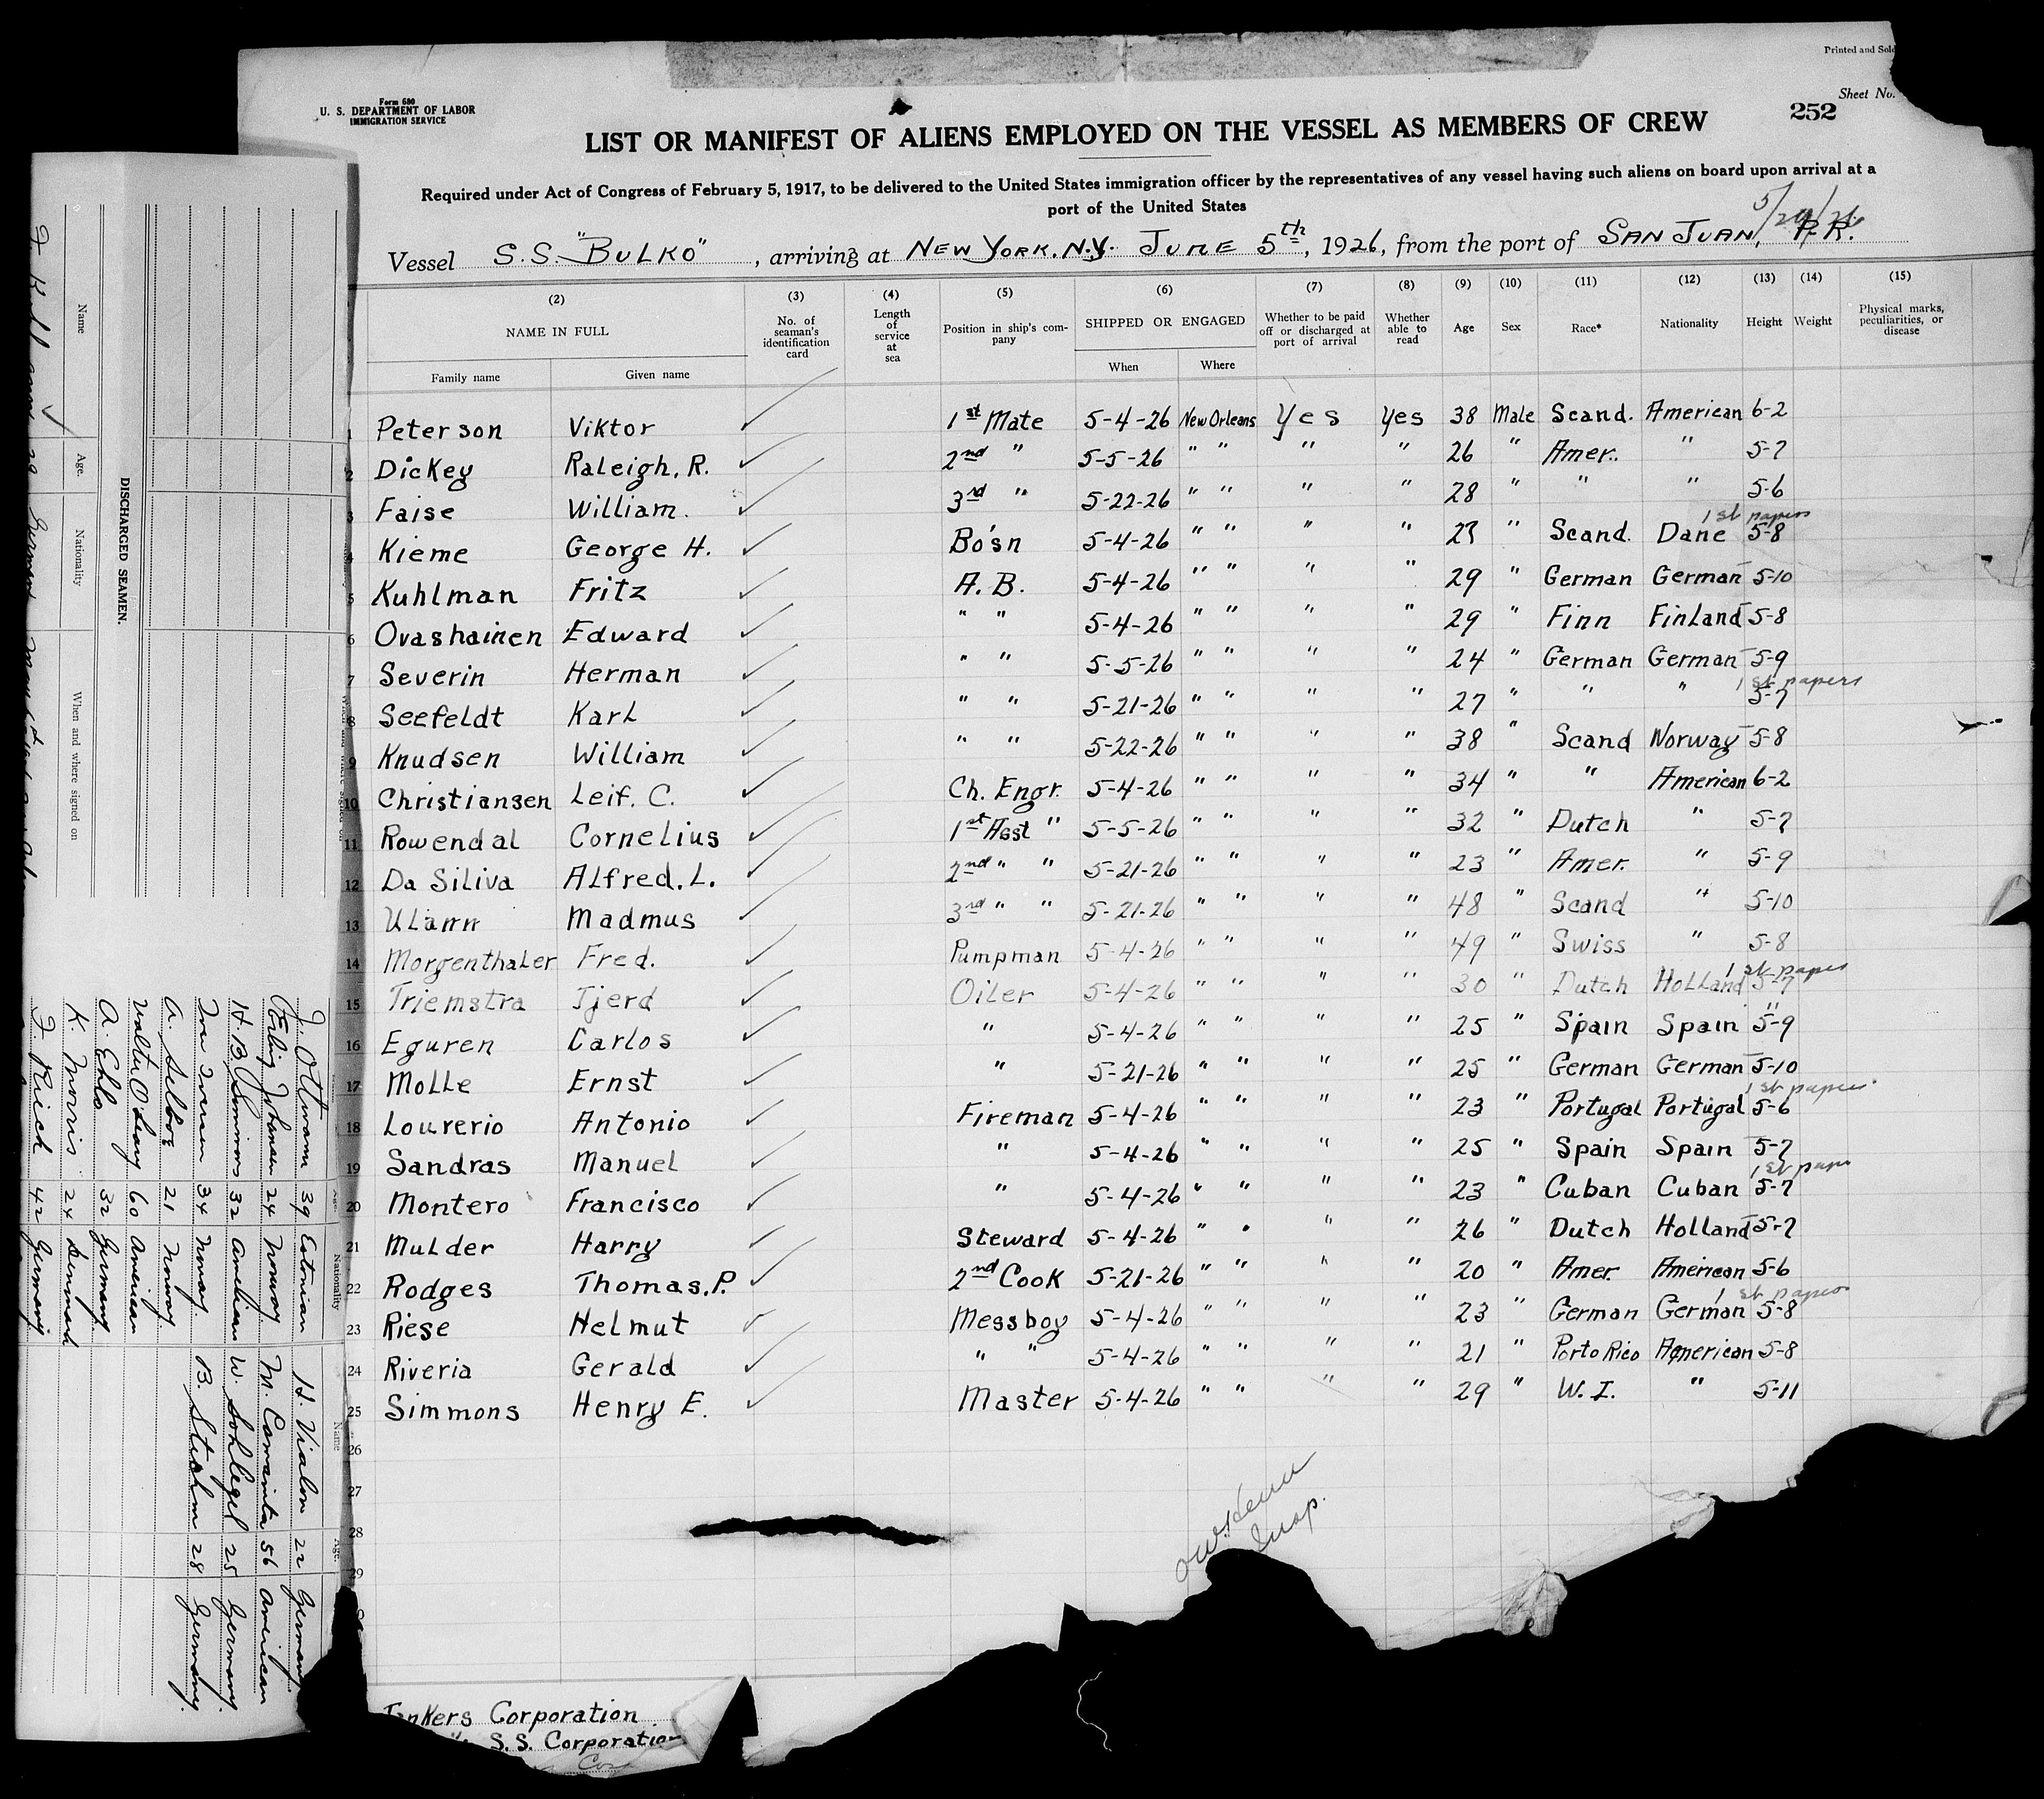 Printed and Sold
Form 680
U. S. DEPARTMENT OF LABOR
IMMIGRATION SERVICE
Sheet No.
252
LIST OR MANIFEST OF ALIENS EMPLOYED ON THE VESSEL AS MEMBERS OF CREW
Required under Act of Congress of February 5, 1917, to be delivered to the United States immigration officer by the representatives of any vessel having such aliens on board upon arrival at a
port of the United States
5/29/26
Vessel S.S. "BULKO", arriving at NEW YORK, N.Y. JUNE 5th, 1926, from the port of SAN JUAN, P.R.
(2) (3) (4) (5) (6) (7) (8) (9) (10) (11) (12) (13) (14) (15)
NAME IN FULL No. of seaman's identification card Length of service at sea Position in ship's company SHIPPED OR ENGAGED Whether to be paid off or discharged at port of arrival Whether able to read Age Sex Race* Nationality Height Weight Physical marks, peculiarities, or disease
Family name Given name When Where
1 Peterson Viktor 1st Mate 5-4-26 New Orleans Yes Yes 38 Male Scand. American 6-2
2 Dickey Raleigh. R. 2nd " 5-5-26 " " " " 26 " Amer. " 5-7
3 Faise William. 3rd " 5-22-26 " " " " 28 " " " 5-6
1st papers
4 Kieme George H. Bo'sn 5-4-26 " " " " 23 " Scand. Dane 5-8
5 Kuhlman Fritz A. B. 5-4-26 " " " " 29 " German German 5-10
6 Ovashainen Edward " " 5-4-26 " " " " 29 " Finn Finland 5-8
7 Severin Herman " " 5-5-26 " " " " 24 " German German 5-9
1st papers
8 Seefeldt Karl " " 5-21-26 " " " " 27 " " " 5-7
9 Knudsen William " " 5-22-26 " " " " 38 " Scand Norway 5-8
10 Christiansen Leif. C. Ch. Engr. 5-4-26 " " " " 34 " " American 6-2
11 Rowendal Cornelius 1st Asst " 5-5-26 " " " " 32 " Dutch " 5-7
12 Da Siliva Alfred. L. 2nd " " 5-21-26 " " " " 23 " Amer. " 5-9
13 Ulann Madmus 3rd " " 5-21-26 " " " " 48 " Scand " 5-10
14 Morgenthaler Fred. Pumpman 5-4-26 " " " " 49 " Swiss " 5-8
1st paper
15 Triemstra Tjerd Oiler 5-4-26 " " " " 30 " Dutch Holland 5-7
16 Eguren Carlos " 5-4-26 " " " " 25 " Spain Spain 5-9
17 Molle Ernst " 5-21-26 " " " " 25 " German German 5-10
1st papers
18 Lourerio Antonio Fireman 5-4-26 " " " " 23 " Portugal Portugal 5-6
19 Sandras Manuel " 5-4-26 " " " " 25 " Spain Spain 5-7
1st paper
20 Montero Francisco " 5-4-26 " " " " 23 " Cuban Cuban 5-7
21 Mulder Harry Steward 5-4-26 " " " " 26 " Dutch Holland 5-7
22 Rodges Thomas. P. 2nd Cook 5-21-26 " " " " 20 " Amer. American 5-6
1st papers
23 Riese Helmut Messboy 5-4-26 " " " " 23 " German German 5-8
24 Riveria Gerald " " 5-4-26 " " " " 21 " Porto Rico American 5-8
25 Simmons Henry E. Master 5-4-26 " " " " 29 " W. I. " 5-11
26
27
28
29
Insp.
Tankers Corporation
S.S. Corporation
DISCHARGED SEAMEN.
Name Age. Nationality When and where signed on
Name Age. Nationality
J. Ottmann 39 Estonian
Erling Johansen 24 Norway
H. B. Simmons 32 American
Iver Iversen 34 Norway.
A. Selboe 21 Norway.
Walter O'Leary 60 American
A. Ehlo 32 Germany.
K. Norris 24 Denmark
F. Rich 42 Germany.
H. Vialon 22 Germany.
M. Camanita 56 American
W. Sohlegel 25 Germany.
B. Stechm 28 Germany.